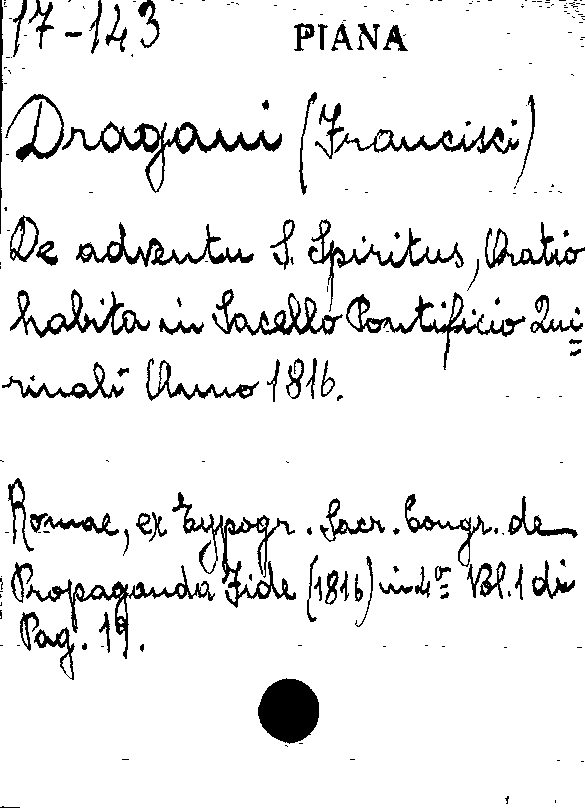 17-143 PIANA
Dragani (Francisci)
De adventu S. Spiritus, Oratio
habita in Sacello Pontificio Qui=
rinali Anno 1816.
Romae, ex Typogr. Sacr. Congr. de
Propaganda Fide (1816) in 4º Vol. 1 di
Pag. 19.